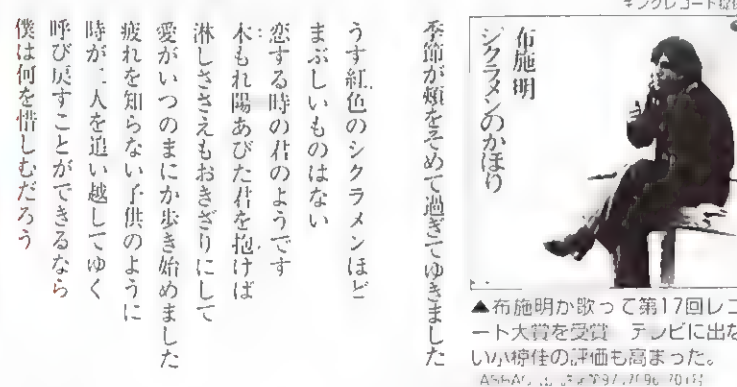 キングレコード提供
布施明
シクラメンのかほり
▲布施明が歌って第17回レコ
ート大賞を受賞 テレビに出な
い小椋佳の評価も高まった。
季節が頬をそめて過ぎてゆきました
うす紅色のシクラメンほど
まぶしいものはない
恋する時の君のようです
木もれ陽あびた君を抱けば
淋しささえもおきざりにして
愛がいつのまにか歩き始めました
疲れを知らない子供のように
時が二人を追い越してゆく
呼び戻すことができるなら
僕は何を惜しむだろう